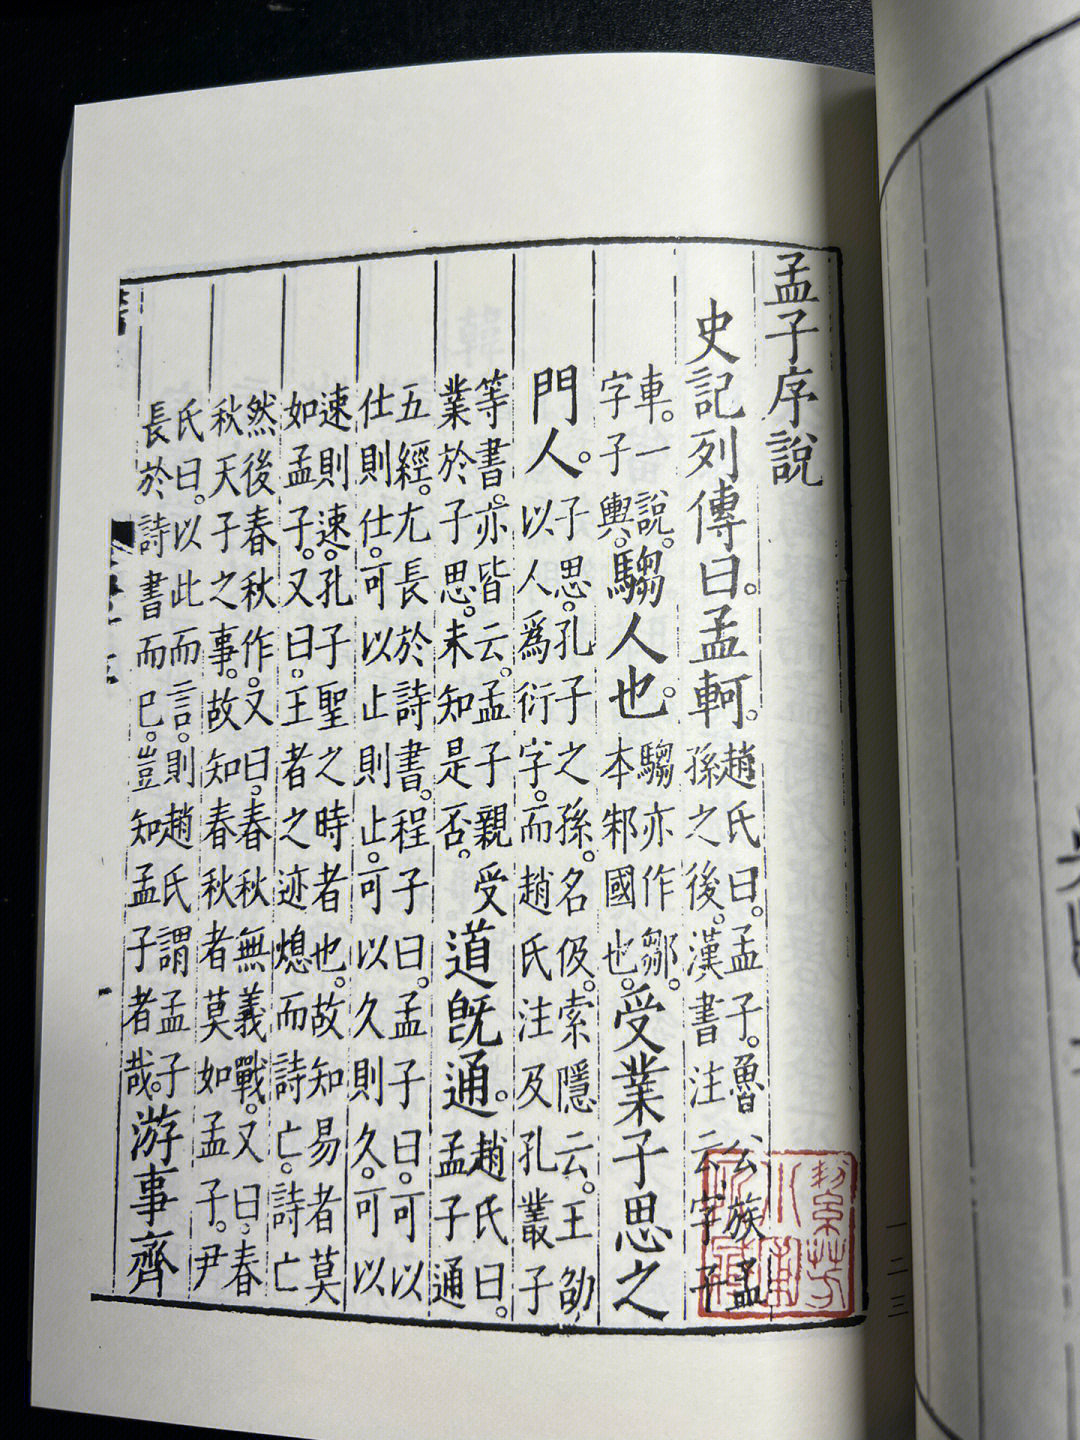 孟子序說
史記列傳曰。孟軻。趙氏曰。孟子。魯公族孟孫之後。漢書注云。字子
車。一說。字子輿。騶人也。騶亦作鄒。本邾國也。受業子思之
門人。子思。孔子之孫。名伋。索隱云。王劭以人爲衍字。而趙氏注及孔叢子
等書。亦皆云。孟子親受業於子思。未知是否。道旣通。趙氏曰。孟子通
五經。尤長於詩書。程子曰。孟子曰。可以仕則仕。可以止則止。可以久則久。可以
速則速。孔子聖之時者也。故知易者莫如孟子。又曰。王者之迹熄而詩亡。詩亡
然後春秋作。又曰。春秋無義戰。又曰。春秋天子之事。故知春秋者莫如孟子。尹
氏曰。以此而言。則趙氏謂孟子長於詩書而已。豈知孟子者哉。游事齊
一二三